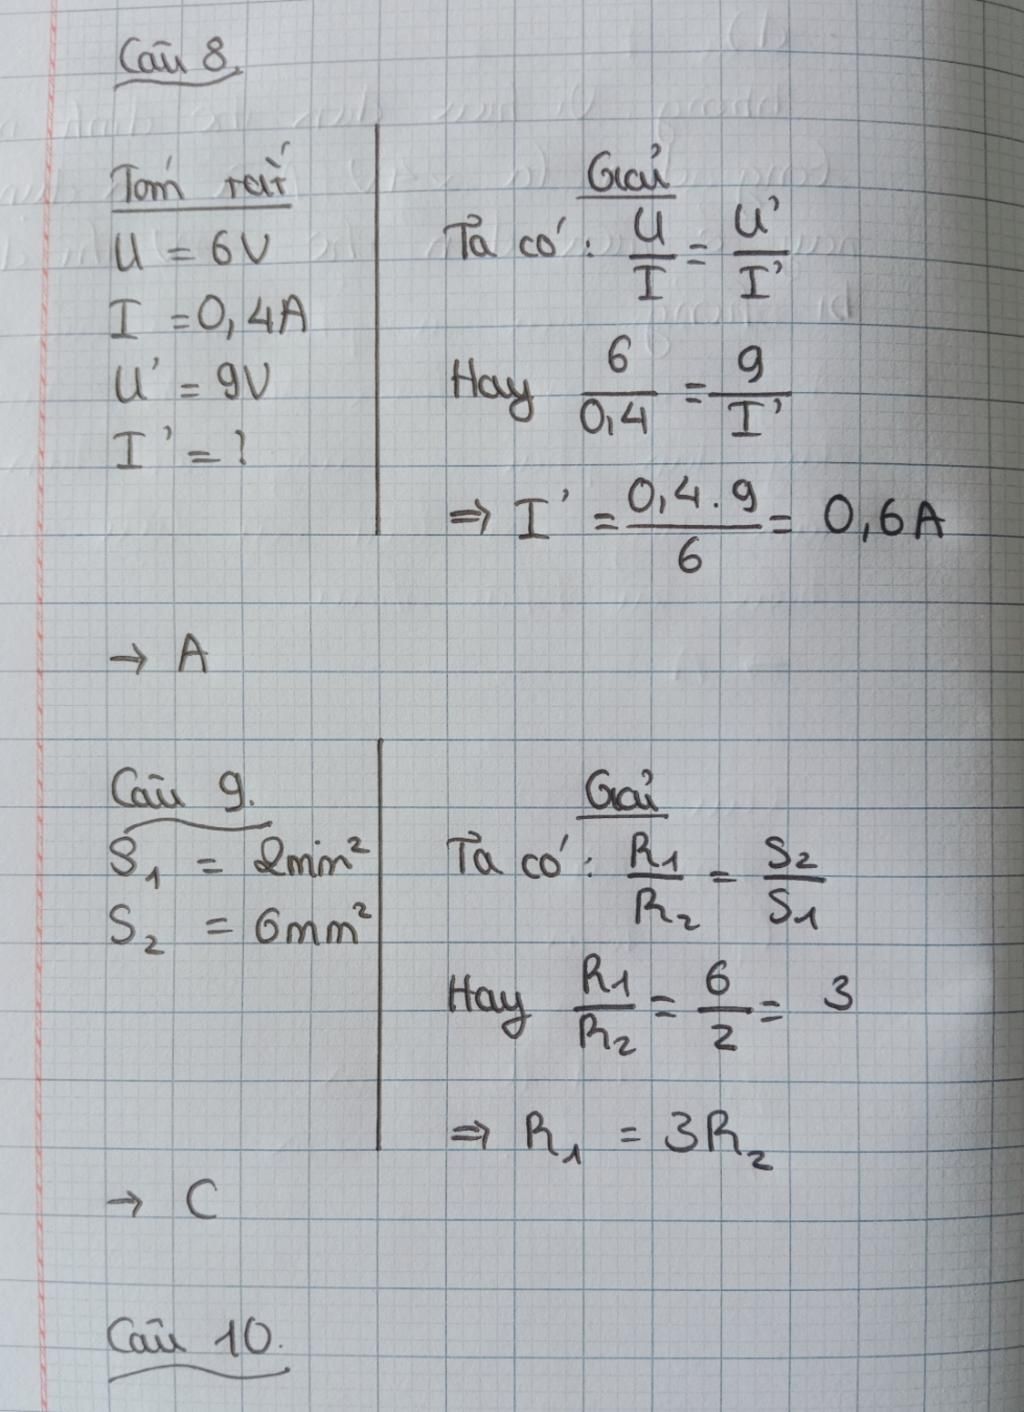 Câu 8.
Tóm tắt
U = 6V
I = 0,4A
U' = 9V
I' = ?
Giải
Ta có: U/I = U'/I'
Hay 6/0,4 = 9/I'
⇒ I' = 0,4.9/6 = 0,6A
→ A
Câu 9.
S₁ = 2mm²
S₂ = 6mm²
Giải
Ta có: R₁/R₂ = S₂/S₁
Hay R₁/R₂ = 6/2 = 3
⇒ R₁ = 3R₂
→ C
Câu 10.